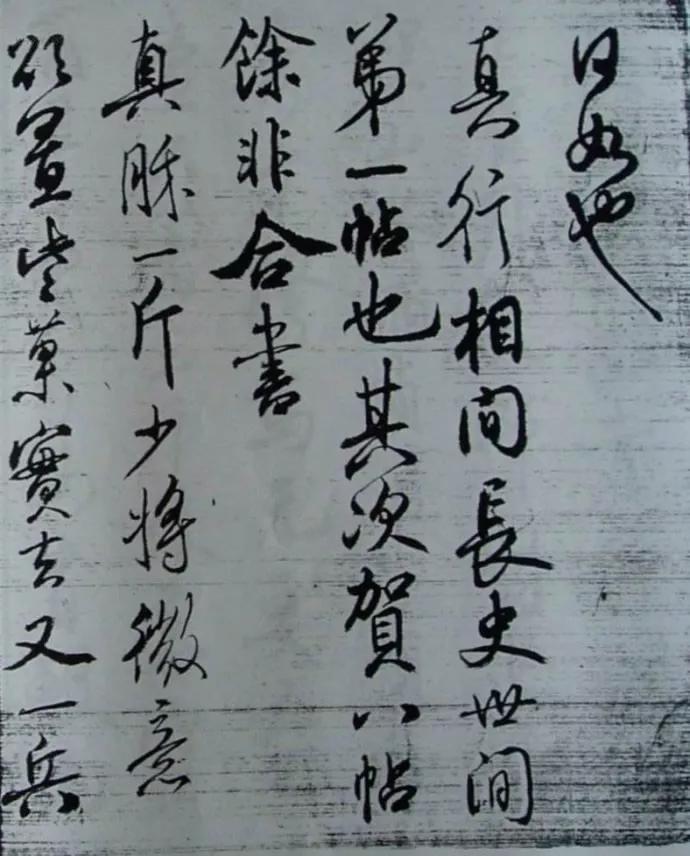 日如也
真行相間長史世間
第一帖也其次賀八帖
餘非合書
真酥一斤少將微意
欲置些菓實去又一兵